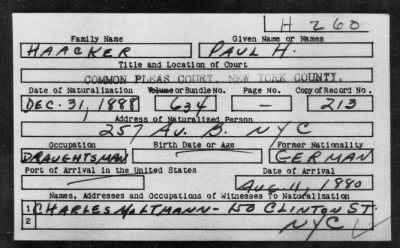 H 260
Family Name Given Name or Names
HAACKER PAUL H.
Title and Location of Court
COMMON PLEAS COURT, NEW YORK COUNTY.
Date of Naturalization Volume or Bundle No. Page No. Copy of Record No.
DEC. 31, 1888 634 — 213
Address of Naturalized Person
257 AV. B. NYC
Occupation Birth Date or Age Former Nationality
DRAUGHTSMAN GERMAN
Port of Arrival in the United States Date of Arrival
AUG. 11, 1880
Names, Addresses and Occupations of Witnesses To Naturalization
1 CHARLES MOLTMANN - 150 CLINTON ST.
2 NYC